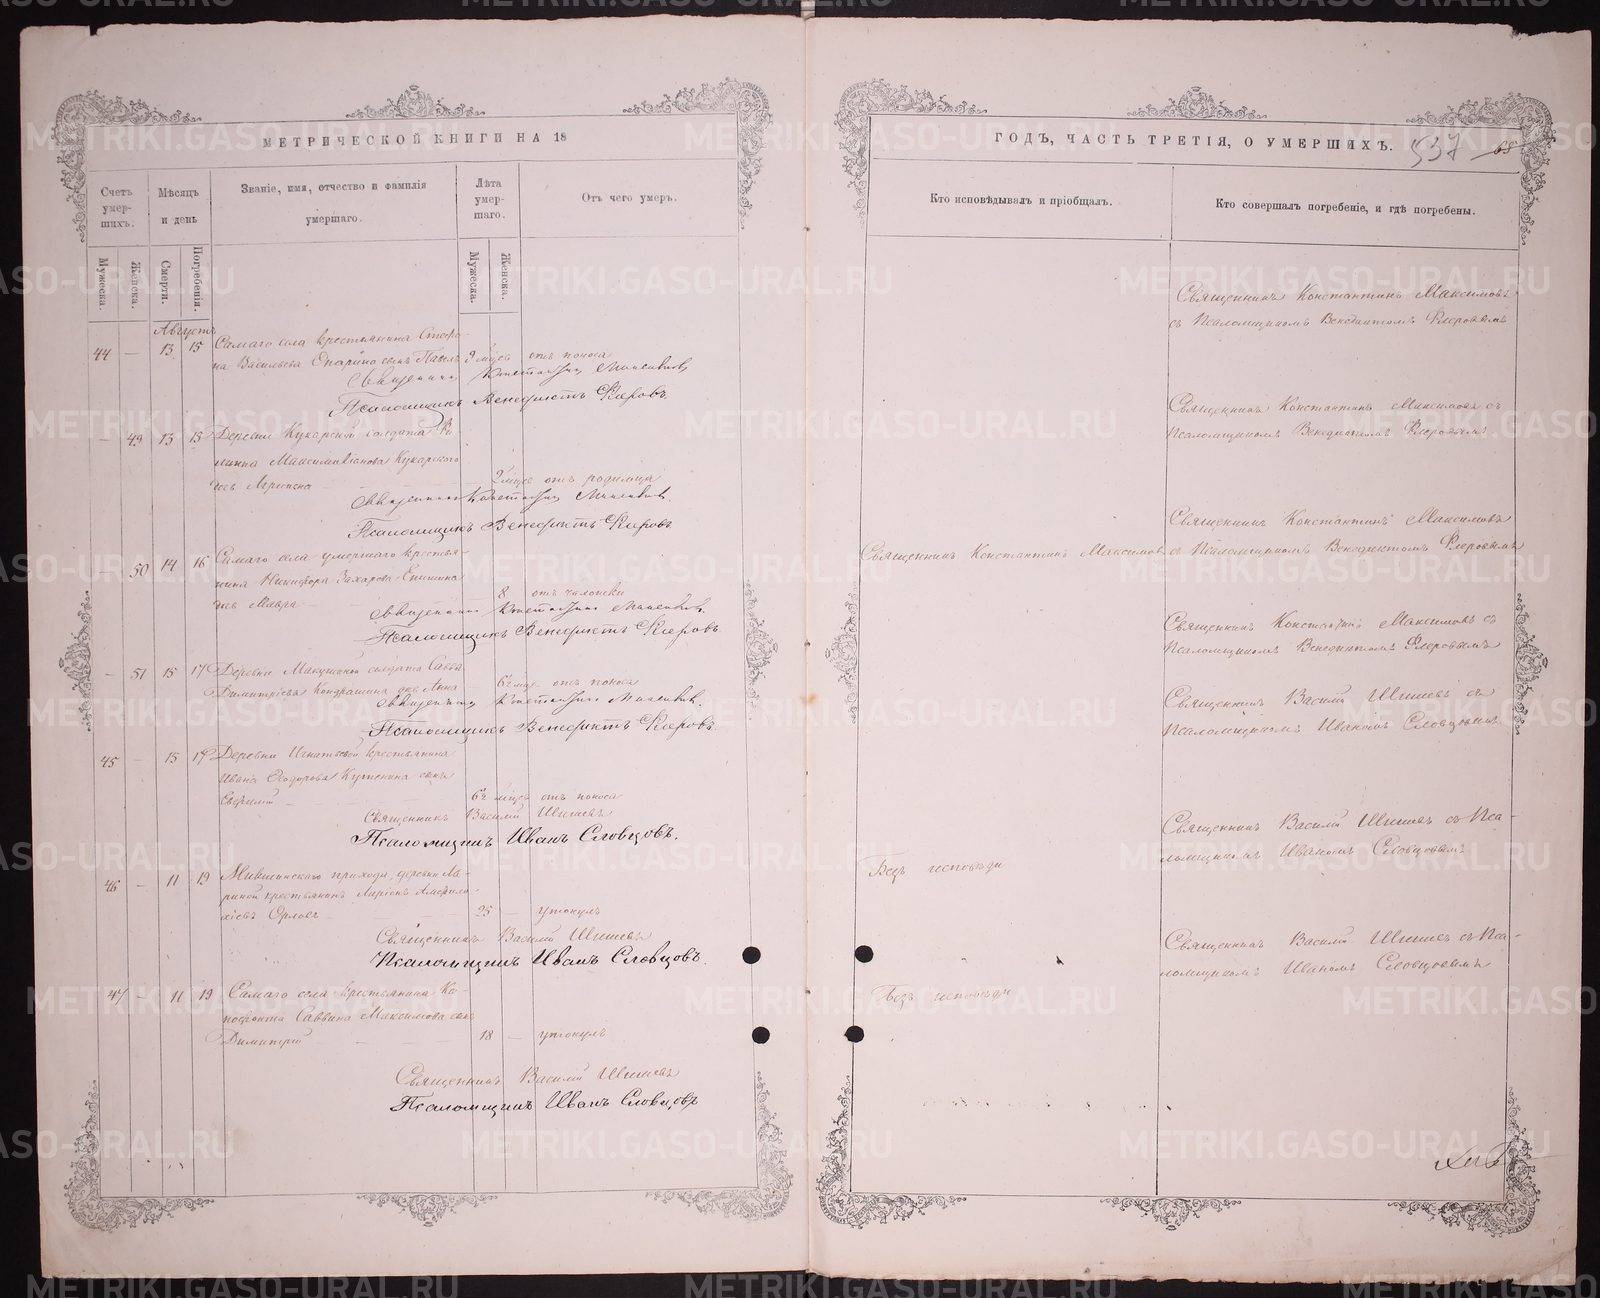 МЕТРИЧЕСКОЙ КНИГИ НА 18
Счетъ умер-
шихъ.
Мѣсяцъ
и день
Званіе, имя, отчество и фамилія
умершаго.
Лѣта
умер-
шаго.
Отъ чего умеръ.
Мужеска.
Женска.
Смерти.
Погребенія.
Мужеска.
Женска.
Августъ
44 — 13 15 Самаго села крестьянина Стефа-
на Васильева Опарина сынъ Павелъ 9 мцсъ отъ поноса
Священникъ Константинъ Максимовъ
Псаломщикъ Венедиктъ Флеровъ.
— 49 13 15 Деревни Кукарской солдата
Кукарскаго
— 2 мцсъ отъ родимца
Священникъ Константинъ Максимовъ.
Псаломщикъ Венедиктъ Флеровъ
50 14 16 Самаго села умершаго крестья-
нина Никифора Захарова Епишина
дчь Мавра — 8 отъ
Священникъ Константинъ Максимовъ.
Псаломщикъ Венедиктъ Флеровъ.
— 51 15 17 Деревни солдата Саввы
Димитріева Кондрашина дчь Анна 6½ мцсъ отъ поноса
Священникъ Константинъ Максимовъ.
Псаломщикъ Венедиктъ Флеровъ.
45 — 15 17 Деревни Игнатьевой крестьянина
Ивана Ѳеодорова сынъ
Евфимій — 6½ мцсъ отъ поноса
Священникъ Василій Шишевъ
Псаломщикъ Иванъ Словцовъ.
46 — 11 19 прихода, деревни Ла-
риной крестьянинъ Ларіонъ Амфило-
хіевъ Орловъ — 25 — утонулъ
Священникъ Василій Шишевъ
Псаломщикъ Иванъ Словцовъ.
47 — 11 19 Самаго села крестьянина Ка-
Саввина Максимова сынъ
Димитрій — 18 — утонулъ
Священникъ Василій Шишевъ
Псаломщикъ Иванъ Словцовъ
ГОДЪ, ЧАСТЬ ТРЕТІЯ, О УМЕРШИХЪ.
537 65
Кто исповѣдывалъ и пріобщалъ.
Кто совершалъ погребеніе, и гдѣ погребены.
Священникъ Константинъ Максимовъ
съ Псаломщикомъ Венедиктомъ Флеровымъ
Священникъ Константинъ Максимовъ съ
Псаломщикомъ Венедиктомъ Флеровымъ
Священникъ Константинъ Максимовъ
Священникъ Константинъ Максимовъ
съ Псаломщикомъ Венедиктомъ Флеровымъ
Священникъ Константинъ Максимовъ съ
Псаломщикомъ Венедиктомъ Флеровымъ
Священникъ Василій Шишевъ съ
Псаломщикомъ Иваномъ Словцовымъ
Безъ исповѣди
Священникъ Василій Шишевъ съ Пса-
ломщикомъ Иваномъ Словцовымъ
Безъ исповѣди
Священникъ Василій Шишевъ съ Пса-
ломщикомъ Иваномъ Словцовымъ
METRIKI.GASO-URAL.RU